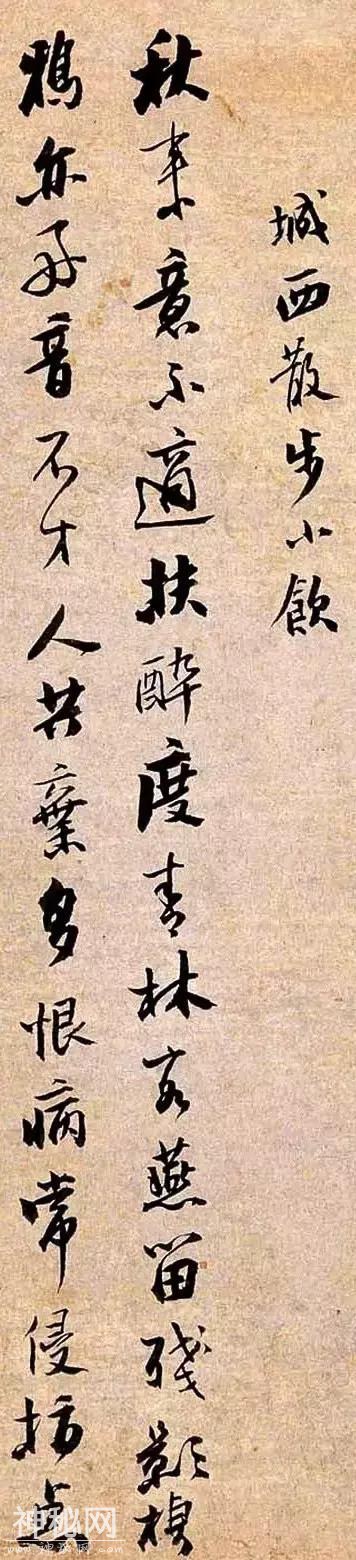 城西散步小飲
秋来意不適扶醉度青林客燕留殘影棲
鴉亦好音不才人共棄多恨病常侵
神秘网